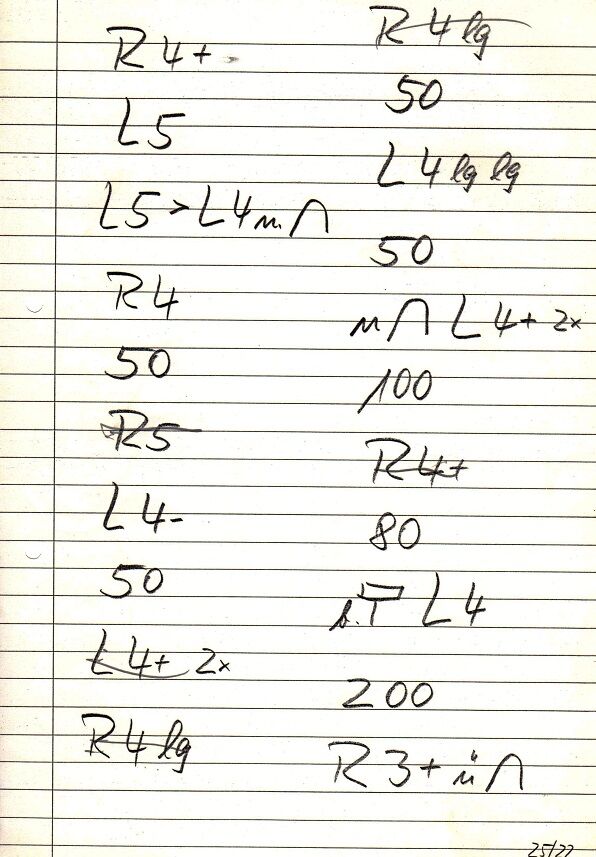 R4+
L5
L5>L4 m∩
R4
50
R5
L4-
50
L4+ 2x
R4 lg
R4 lg
50
L4 lg lg
50
m∩ L4+ 2x
100
R4+
80
L4
200
R3+ ü∩
25/27